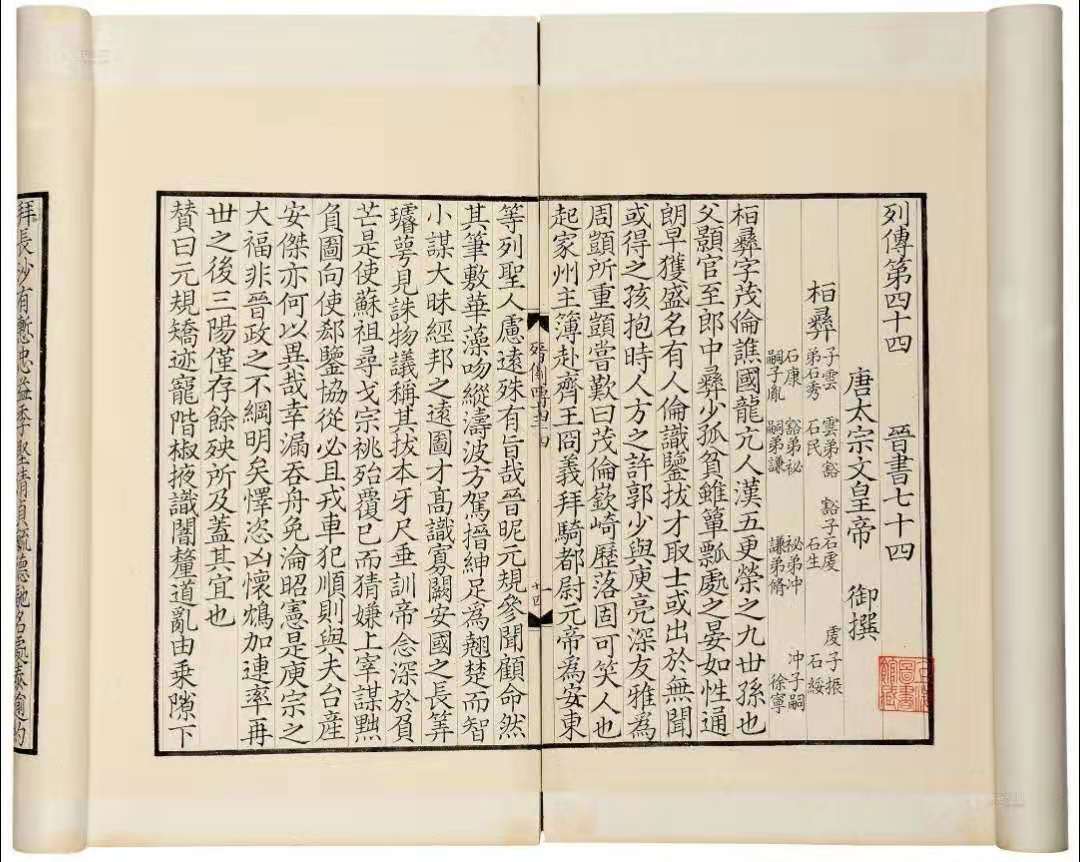 列傳第四十四　晉書七十四
唐太宗文皇帝　御撰
桓彝
子雲　雲弟豁　豁子石虔　虔子振
弟石秀　石民　石生　石綏
石康　豁弟祕　祕弟沖　沖子嗣
嗣子胤　嗣弟謙　謙弟脩　徐寧
桓彝字茂倫譙國龍亢人漢五更榮之九世孫也
父顥官至郎中彝少孤貧雖簞瓢處之晏如性通
朗早獲盛名有人倫識鑒拔才取士或出於無聞
或得之孩抱時人方之許郭少與庾亮深友雅為
周顗所重顗嘗歎曰茂倫嶔崎歷落固可笑人也
起家州主簿赴齊王冏義拜騎都尉元帝為安東
十四
等列聖人慮遠殊有旨哉晉昵元規參聞顧命然
其筆敷華藻吻縱濤波方駕搢紳足為翹楚而智
小謀大昧經邦之遠圖才高識寡闕安國之長筭
璿萼見誅物議稱其拔本牙尺垂訓帝念深於負
芒是使蘇祖尋戈宗祧殆覆已而猜嫌上宰謀黜
負圖向使郄鑒協從必且戎車犯順則與夫台產
安傑亦何以異哉幸漏吞舟免淪昭憲是庾宗之
大福非晉政之不綱明矣懌恣凶懷鴆加連率再
世之後三陽僅存餘殃所及蓋其宜也
贊曰元規矯迹寵階椒掖識闇釐道亂由乘隙下
拜長沙有慙忠益季堅清貞毓德馳名處泰逾約